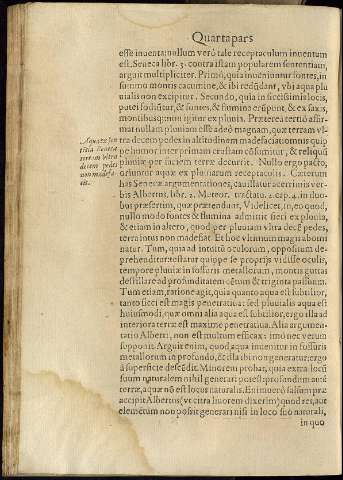 Quarta pars
esse inuenta: nullum verò tale receptaculum inuentum
est. Seneca libr. 3. contra istam popularem sententiam,
arguit multipliciter. Primò, quia inueniuntur fontes, in
summo montis cacumine, & ibi redūdant, vbi aqua plu
uialis non excipitur. Secundo, quia in siccissimis locis,
putei fodiūtur, & fontes, & flumina erūpunt, & ex saxis,
montibusq; non igitur ex pluuia. Præterea tertiò affir
mat nullam pluuiam esse adeò magnam, quæ terram vl
tra decem pedes in altitudinem madefaciat: omnis quip
pe humor inter primam crustam cōsumitur, & reliquū
pluuiæ per faciem terræ decurrit. Nullo ergo pacto,
oriuntur aquæ ex pluuiarum receptaculis. Cæterum
has Senecæ argumentationes, cauillatur acerrimis ver-
bis Albertus, libr. 2. Meteor. tractatu. 2. cap. 4. in duo-
bus præsertim, quæ prætendunt, Videlicet, in, eo quod,
nullo modo fontes & flumina admittit fieri ex pluuia,
& etiam in altero, quod per pluuiam vltra decē pedes,
terra intus non madefiat. Et hoc vltimum magis abomi
natur. Tum, quia ad intuitū oculorum, oppositum de-
prehenditur: testatur quippe se proprijs vidisse oculis,
tempore pluuiæ in fossuris metallorum, montis guttas
destillare ad profunditatem cētum & triginta passuum.
Tum etiam, ratione agit, quia quanto aqua est subtilior,
tanto sicci est magis penetratiua: sed pluuialis aqua est
huiusmodi, quæ omni alia aqua est subtilior, ergo illa ad
interiora terræ est maximè penetratiua. Alia argumen-
tatio Alberti, non est multum efficax: imo nec verum
supponit. Arguit enim, quod aqua inuenitur in fossuris
metallorum in profundo, & illa ibi non generatur: ergo
à superficie descēdit. Minorem probat, quia extra locū
suum naturalem nihil generari potest: profundum autē
terræ, aquæ nō est locus naturalis. Eni muerò falsum præ
accipit Albertus (vt citra liuorem dixerim) quod res, aut
elemētum non possit generari nisi in loco suo naturali,
in quo